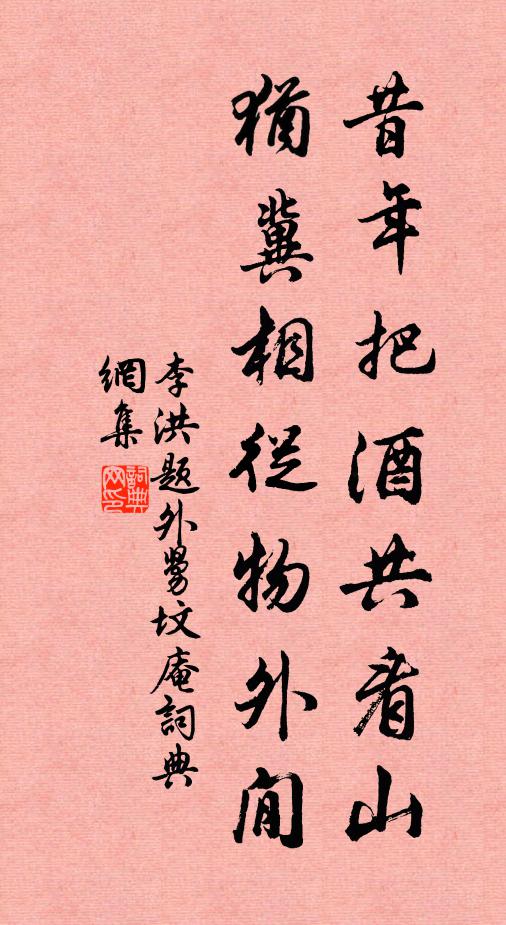 昔年把酒共看山
猶冀相從物外閒
李洪题外舅坟庵詞典
網集
詞典網印